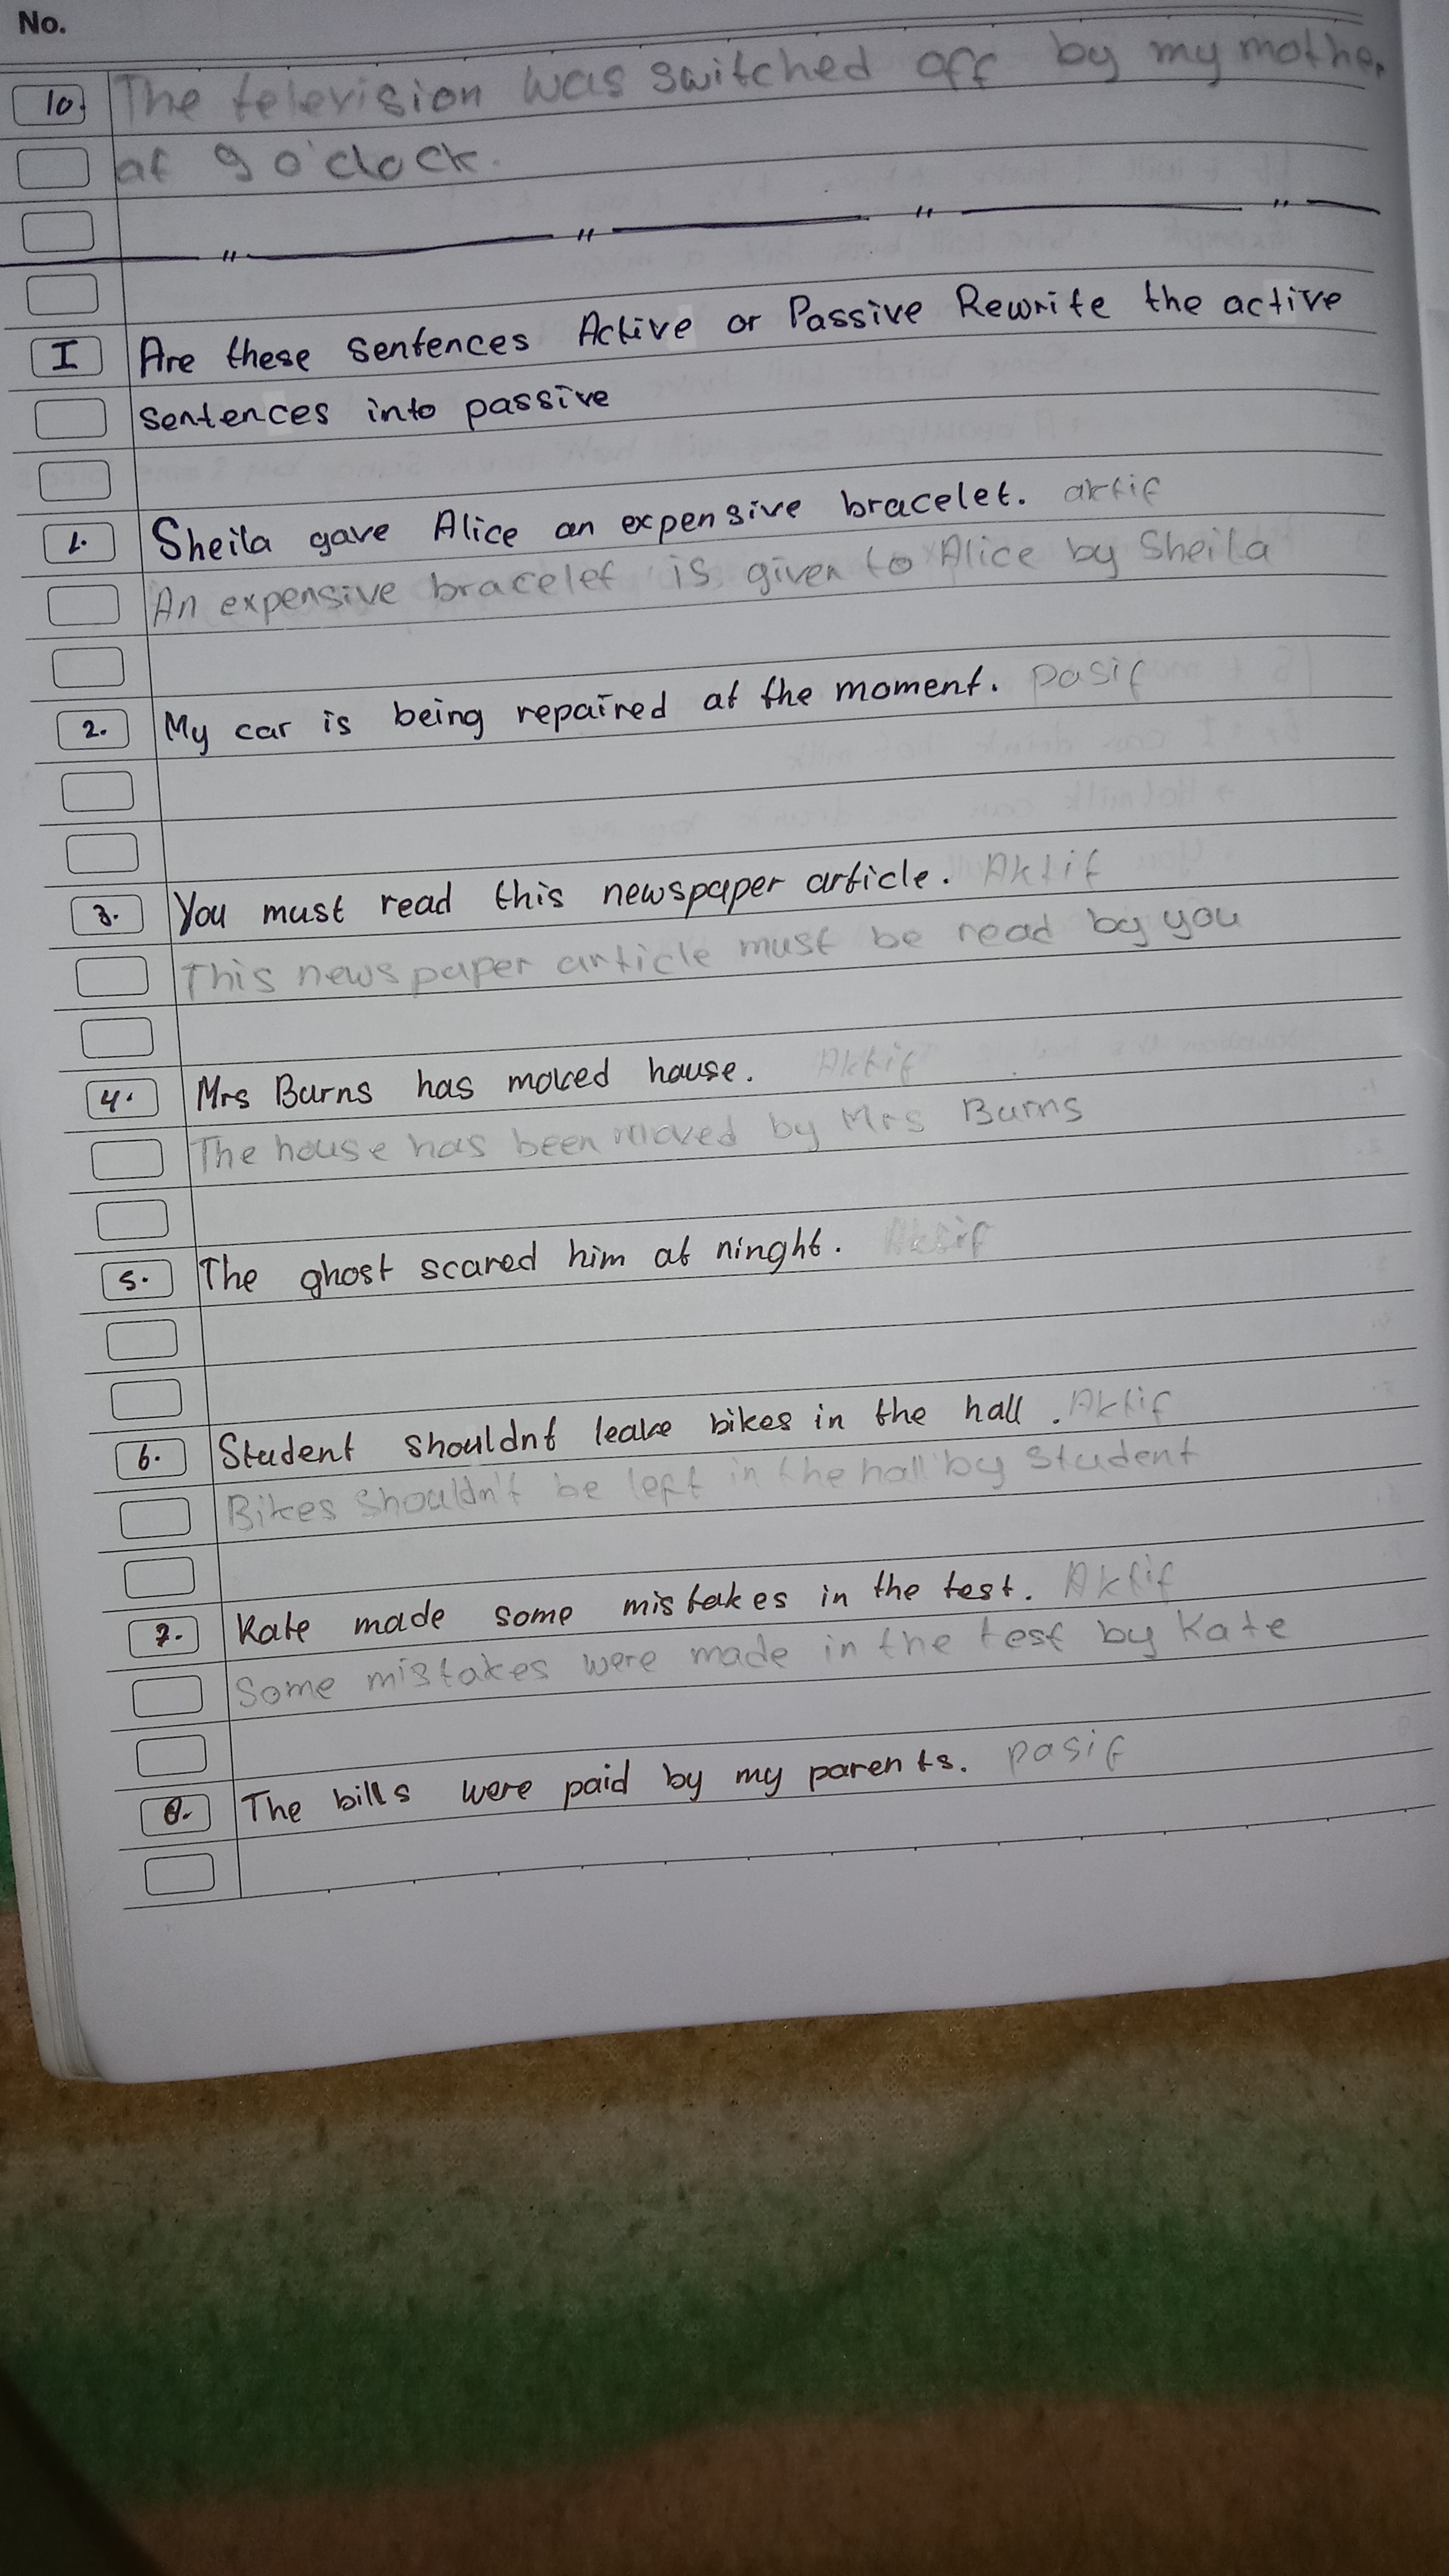 No.
10. The television was switched off by my mother
at 9 o'clock.
I Are these sentences Active or Passive Rewrite the active
sentences into passive
1. Sheila gave Alice an expensive bracelet. aktif
An expensive bracelet is given to Alice by Sheila
2. My car is being repaired at the moment. pasif
3. You must read this newspaper article. Aktif
This newspaper article must be read by you
4. Mrs Burns has moved house. Aktif
The house has been moved by Mrs Burns
5. The ghost scared him at ninght. Aktif
6. Student shouldnt leave bikes in the hall. Aktif
Bikes shouldn't be left in the hall by student
7. Kate made some mistakes in the test. Aktif
Some mistakes were made in the test by Kate
8. The bills were paid by my parents. pasif